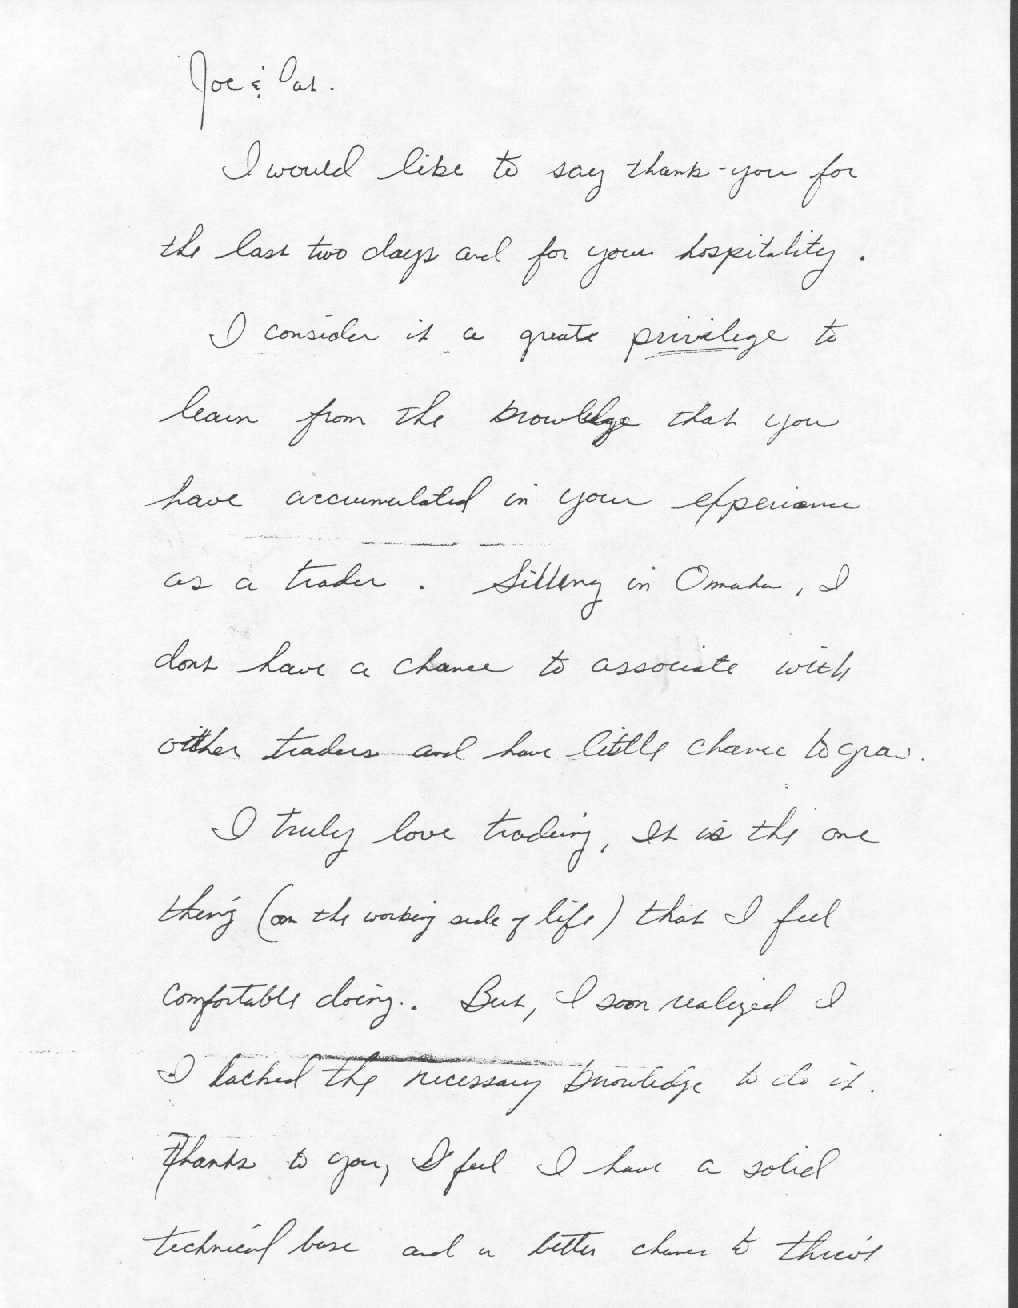 Joe & Pat.
I would like to say thank-you for
the last two days and for your hospitality.
I consider it a great privilege to
learn from the knowledge that you
have accumulated in your experience
as a trader. Sitting in Omaha, I
dont have a chance to associate with
other traders and have little chance to grow.
I truly love trading, It is the one
thing (on the working side of life) that I feel
comfortable doing.. But, I soon realized I
I lacked the necessary knowledge to do it.
Thanks to you, I feel I have a solid
technical base and a better chance to